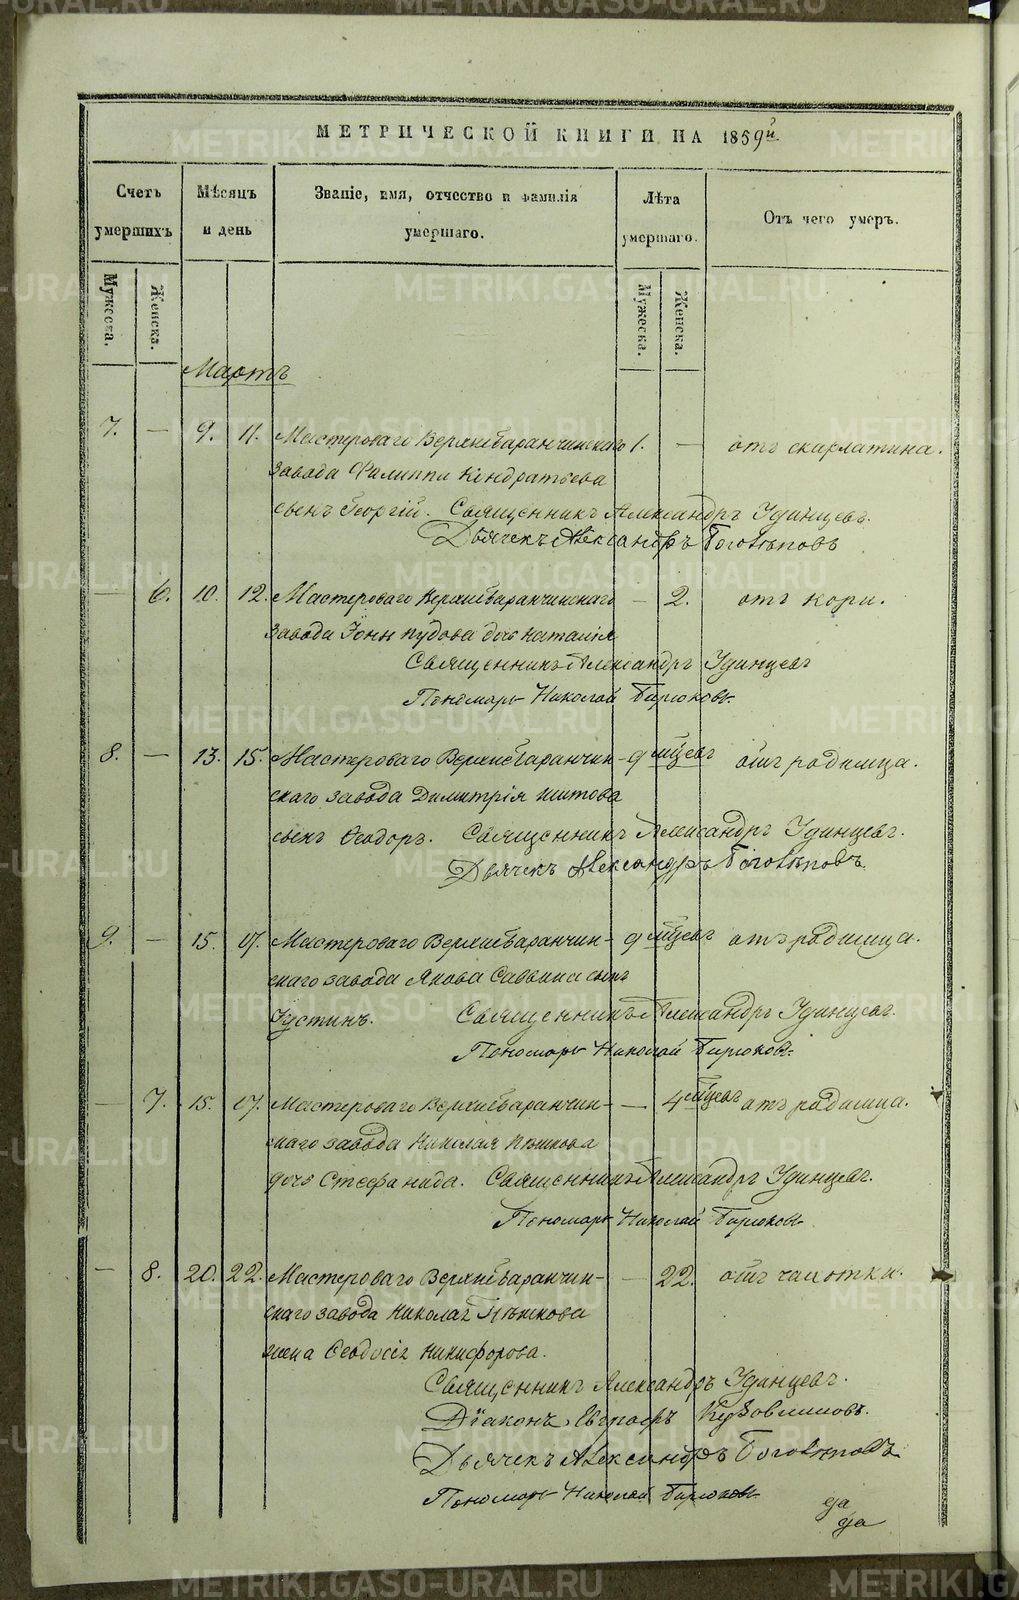 METRIKI.GASO-URAL.RU
МЕТРИЧЕСКОЙ КНИГИ НА 1859й
Счетъ умершихъ
Мѣсяцъ и день
Званіе, имя, отчество и фамилія умершаго.
Лѣта умершаго.
Отъ чего умеръ.
Мужеска.
Женска.
Мужеска.
Женска.
Мартъ
7. — 9. 11. Мастероваго Верхнебаранчинскаго 1. — отъ скарлатина.
завода Филиппа Кондратьева
сынъ Георгій. Священникъ Александръ Удинцевъ.
Дьячекъ Александръ Боголѣповъ
— 6. 10. 12. Мастероваго Верхнебаранчинскаго — 2. отъ кори.
завода Іоны Пудова дочь Наталія
Священникъ Александръ Удинцевъ
Пономарь Николай Бирюковъ.
8. — 13. 15. Мастероваго Верхнебаранчин- 9 мѣсяцевъ отъ родимца.
скаго завода Димитрія Титова
сынъ Ѳеодоръ. Священникъ Александръ Удинцевъ.
Дьячекъ Александръ Боголѣповъ.
9. — 15. 17. Мастероваго Верхнебаранчин- 9 мцевъ отъ родимца.
скаго завода Якова Саввина сынъ
Іустинъ. Священникъ Александръ Удинцевъ.
Пономарь Николай Бирюковъ.
— 7. 15. 17. Мастероваго Верхнебаранчин- — 4 мцевъ отъ родимца.
скаго завода Николая Пѣшкова
дочь Стефанида. Священникъ Александръ Удинцевъ.
Пономарь Николай Бирюковъ.
— 8. 20. 22. Мастероваго Верхнебаранчин- — 22. отъ чахотки.
скаго завода Николая Пѣшкова
жена Ѳеодосія Никифорова.
Священникъ Александръ Удинцевъ.
Діаконъ Евграфъ
Дьячекъ Александръ Боголѣповъ
Пономарь Николай Бирюковъ